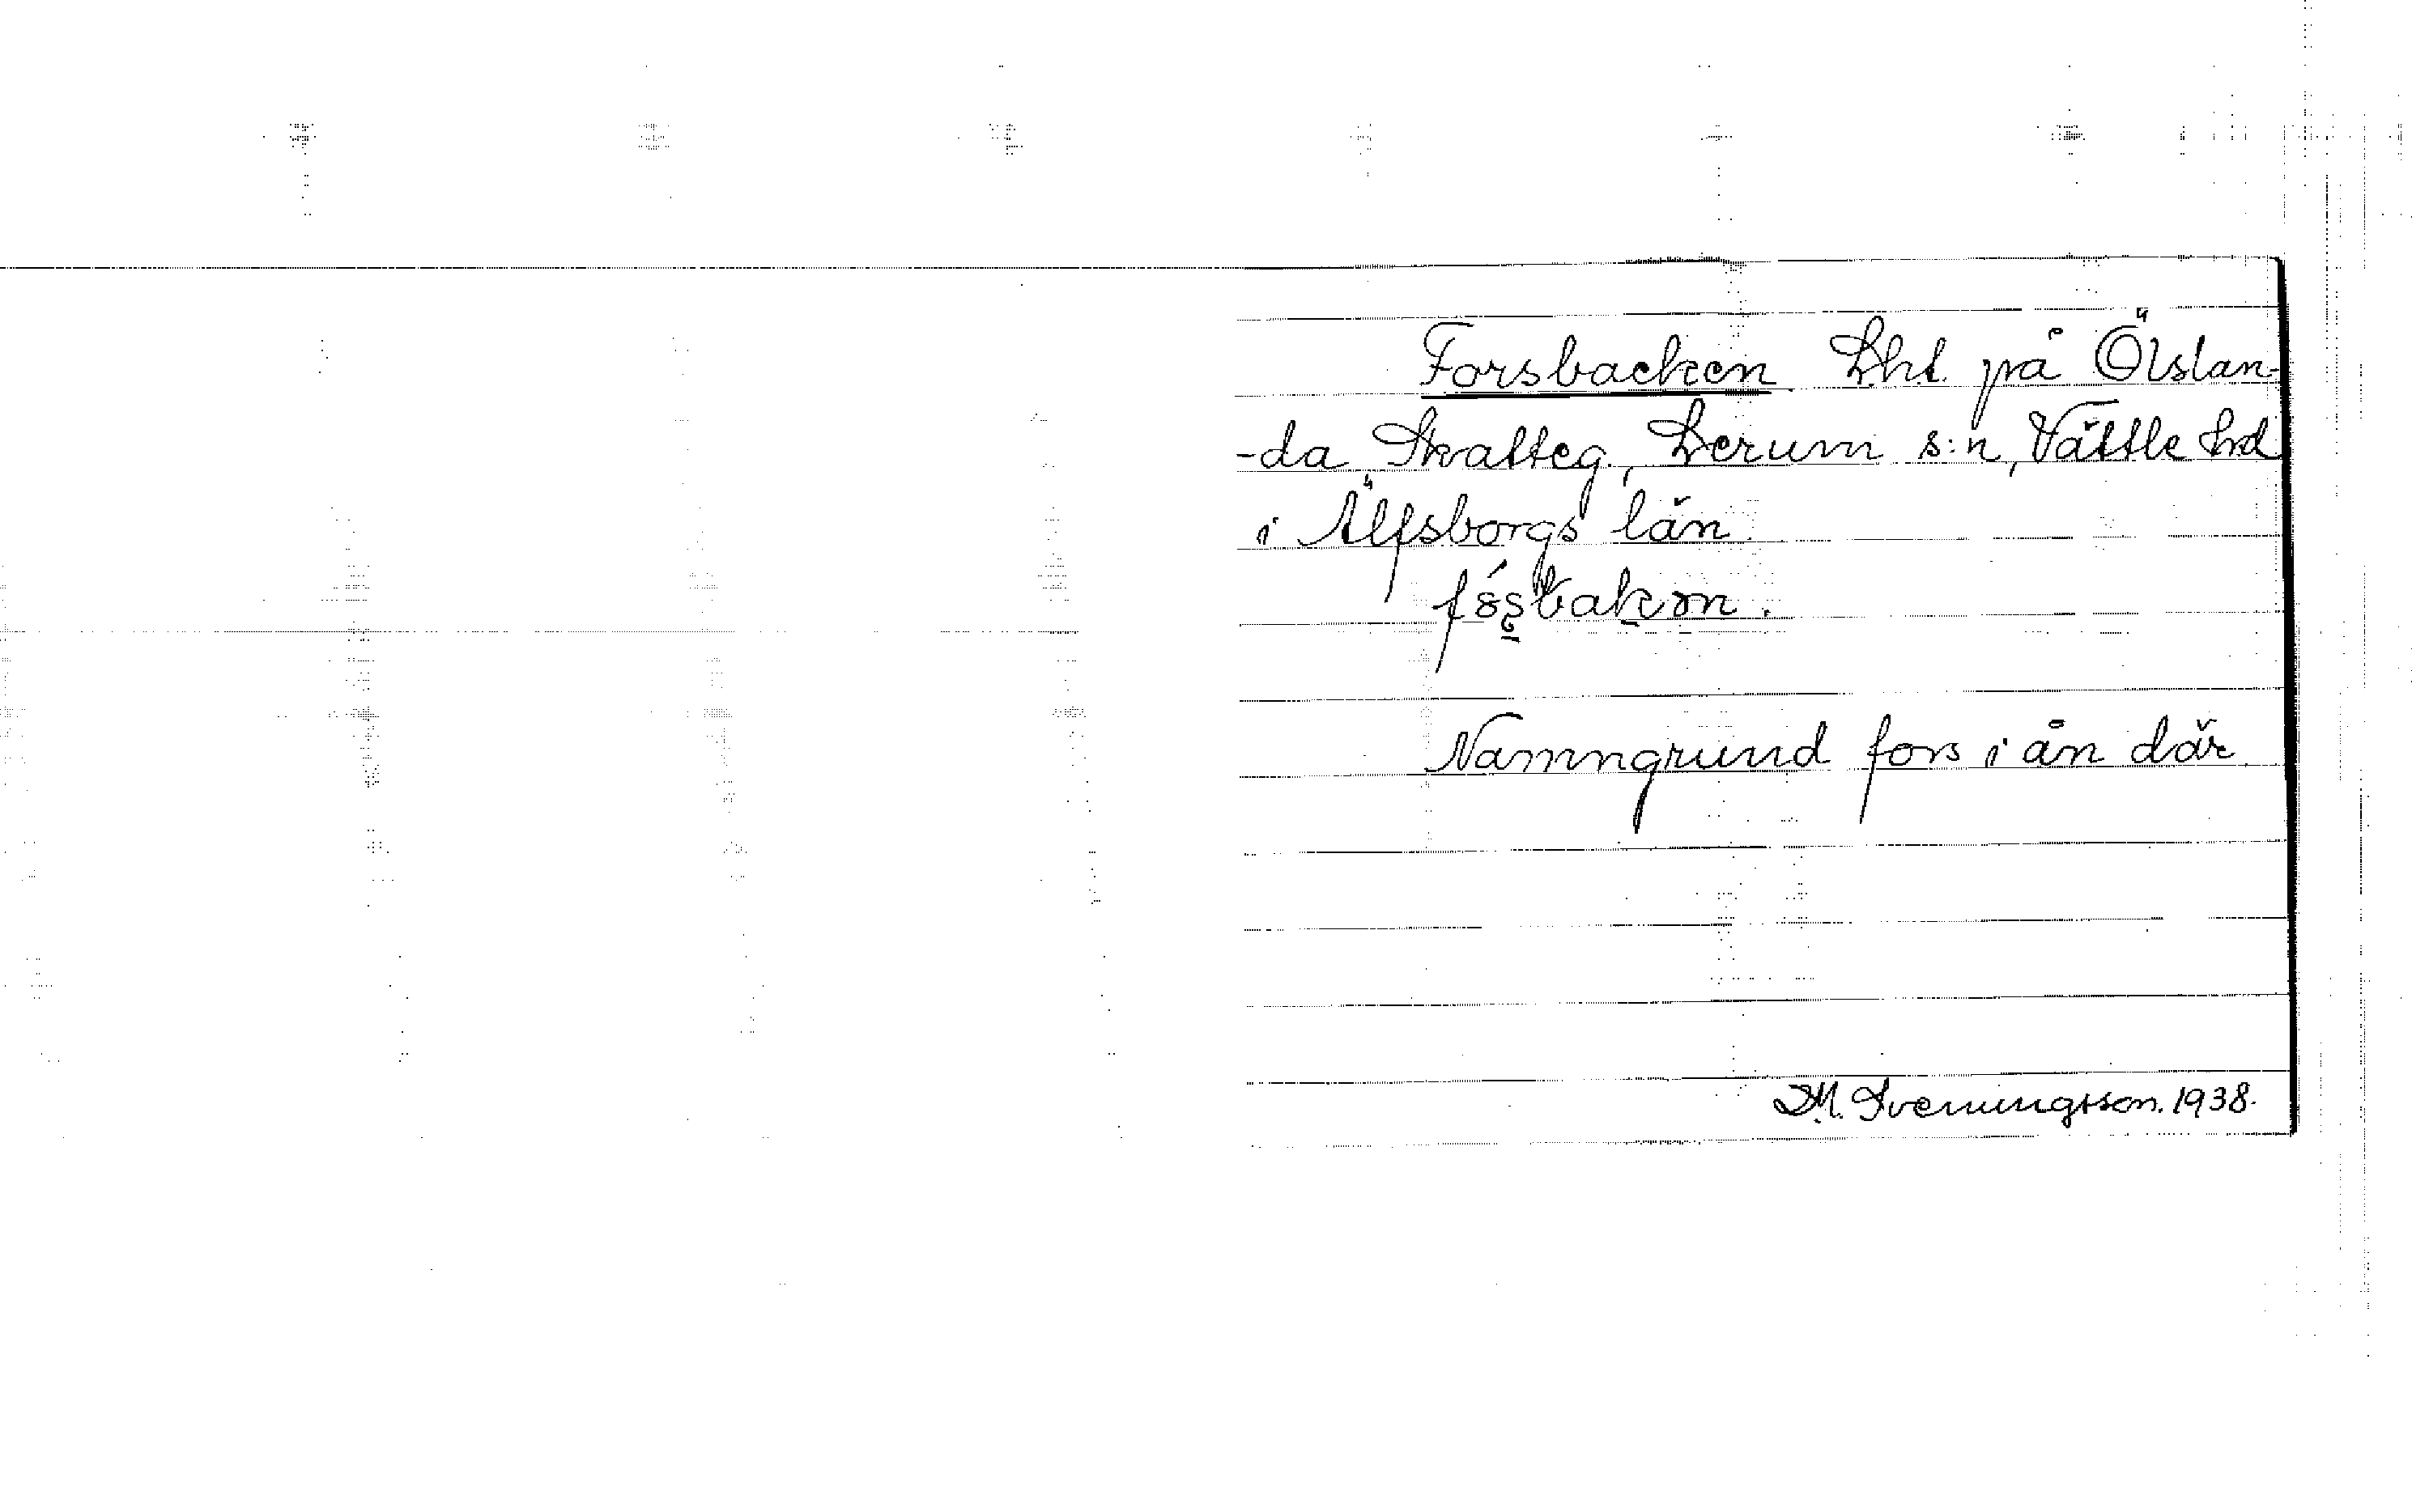 Forsbacken. Lht. på Ölslan-
-da Skatteg., Lerum s:n, Vättle hd
i Älfsborgs län.
Namngrund fors i ån där.
D.M. Sveningsson. 1938.